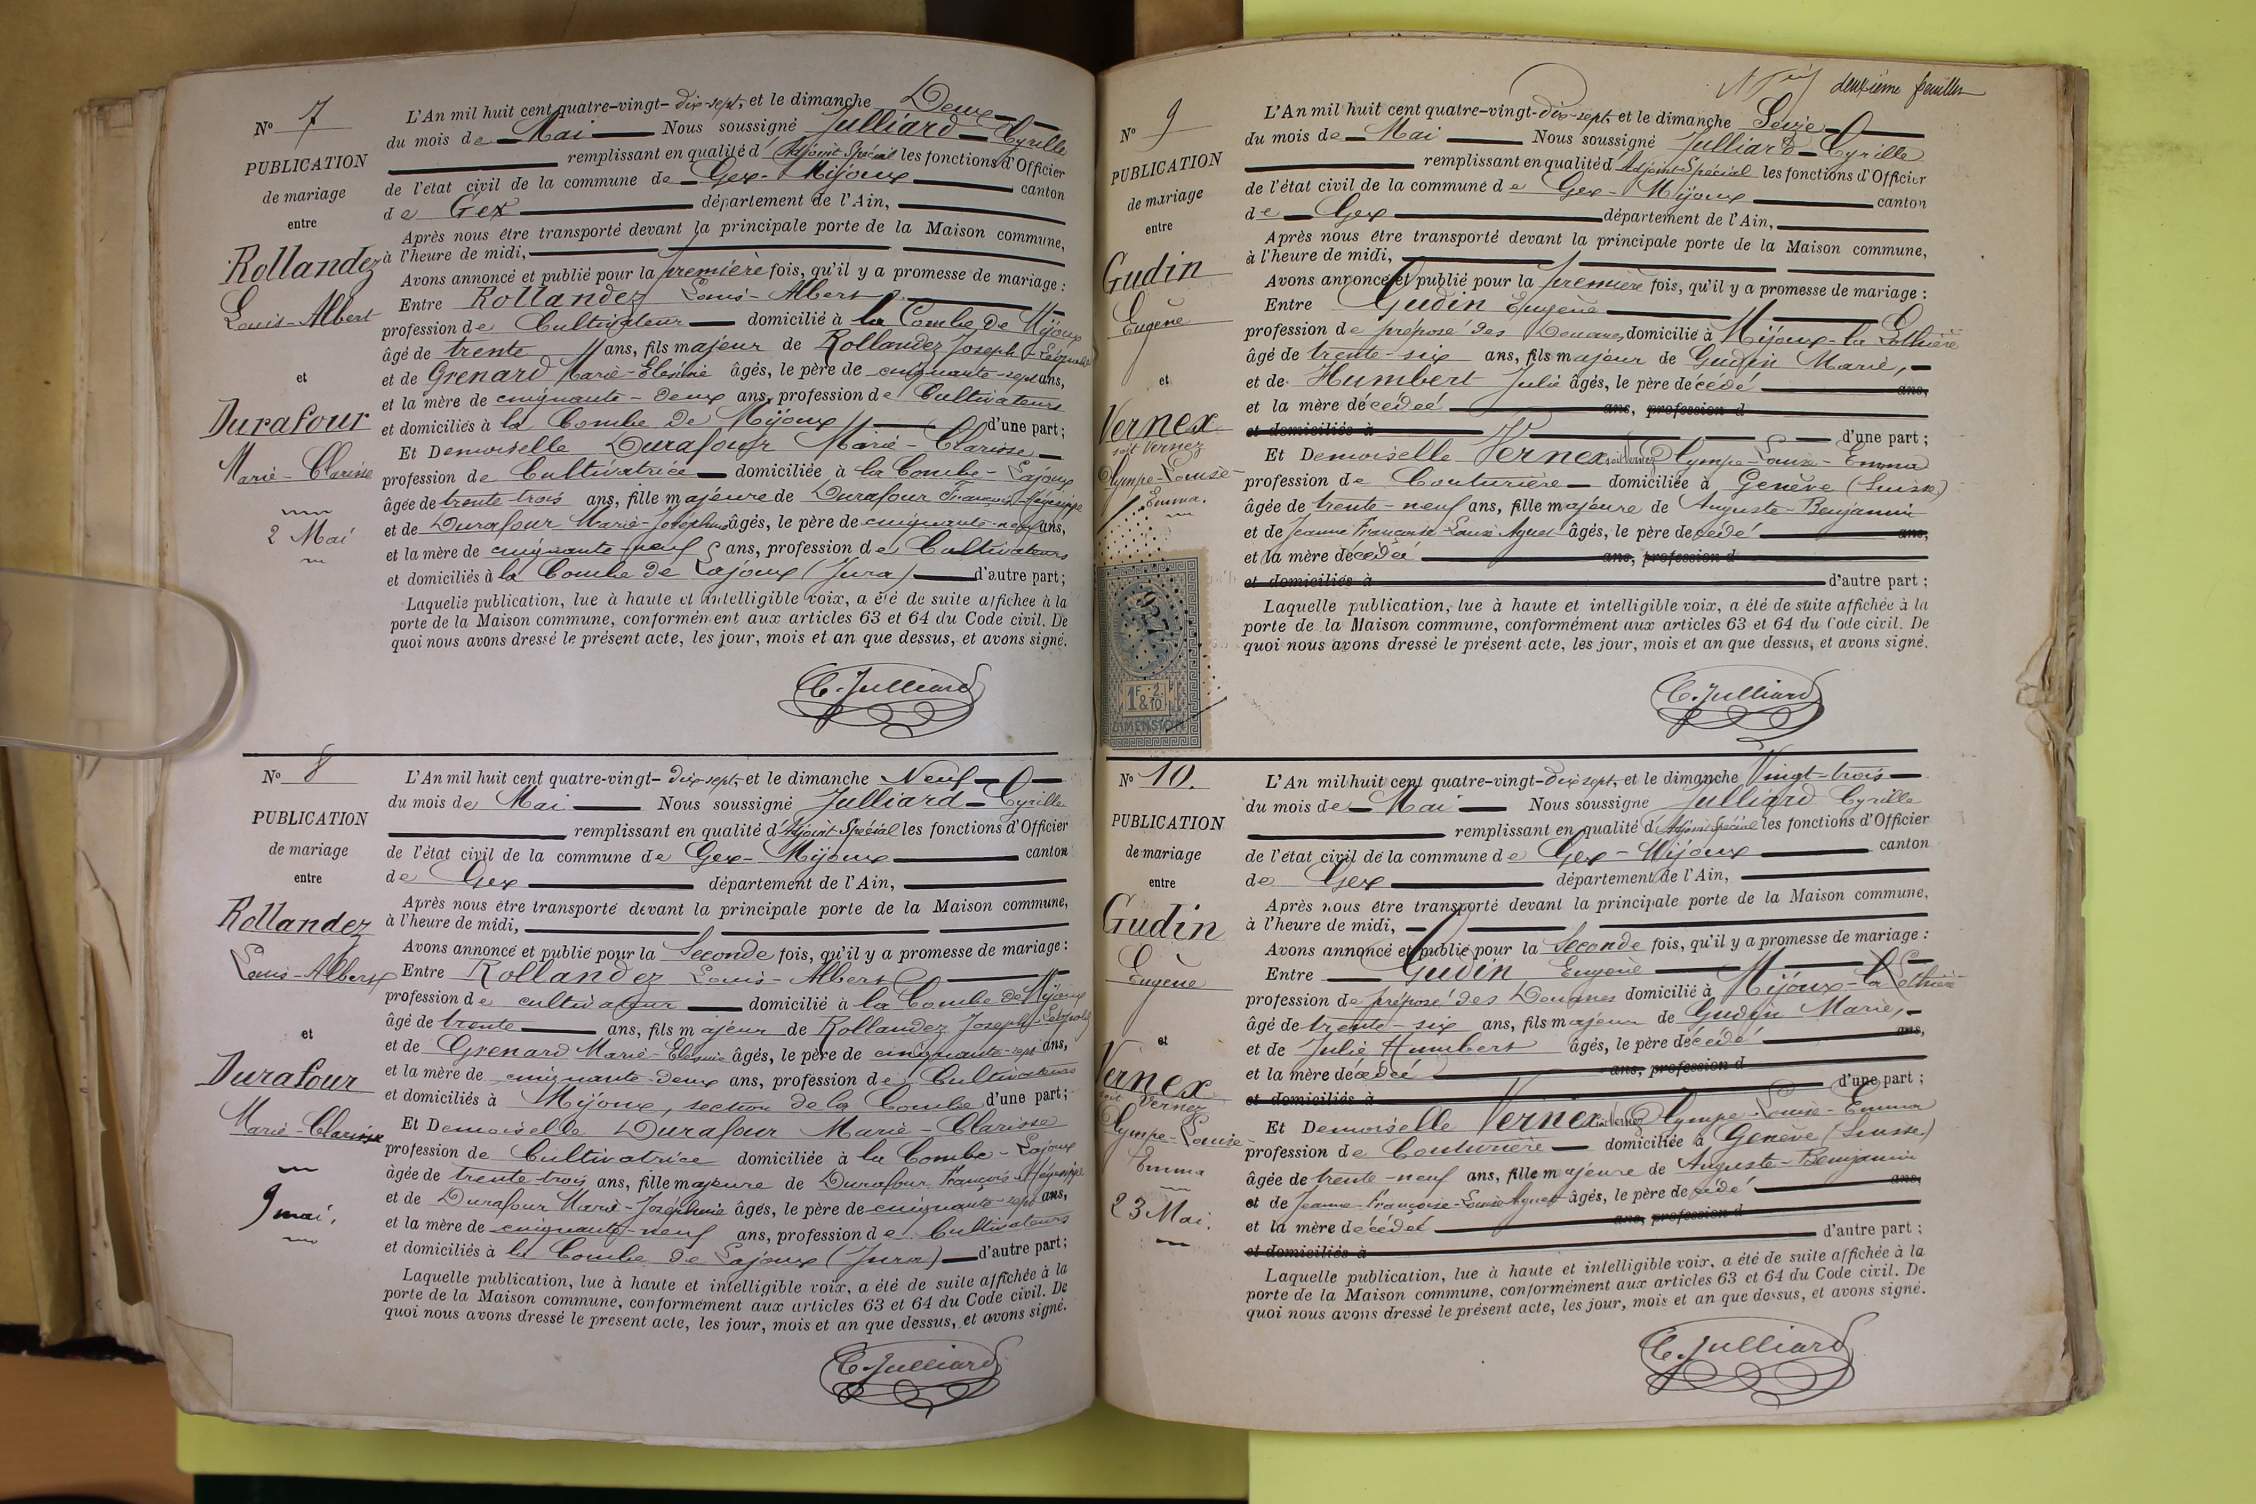 N° 7
PUBLICATION
de mariage
entre
Rollandez
Louis-Albert
et
Durafour
Marie-Clarisse
2 Mai
L'An mil huit cent quatre-vingt-dix-sept, et le dimanche Deux
du mois de Mai Nous soussigné Julliard Cyrille
remplissant en qualité d'Adjoint Spécial les fonctions d'Officier
de l'état civil de la commune de Gex-Mijoux canton
de Gex département de l'Ain,
Après nous être transporté devant la principale porte de la Maison commune,
à l'heure de midi,
Avons annoncé et publié pour la première fois, qu'il y a promesse de mariage :
Entre Rollandez Louis-Albert
profession de Cultivateur domicilié à la Combe de Mijoux
âgé de trente ans, fils majeur de Rollandez Joseph-Léopold
et de Grenard Marie- âgés, le père de cinquante-sept ans,
et la mère de cinquante-deux ans, profession de Cultivateurs
et domiciliés à la Combe de Mijoux d'une part ;
Et Demoiselle Durafour Marie-Clarisse
profession de Cultivatrice domiciliée à la Combe-Lajoux
âgée de trente-trois ans, fille majeure de Durafour François-
et de Durafour Marie-Joséphine âgés, le père de cinquante-neuf ans,
et la mère de cinquante-neuf ans, profession de Cultivateurs
et domiciliés à la Combe de Lajoux (Jura) d'autre part ;
Laquelle publication, lue à haute et intelligible voix, a été de suite affichée à la
porte de la Maison commune, conformément aux articles 63 et 64 du Code civil. De
quoi nous avons dressé le présent acte, les jour, mois et an que dessus, et avons signé.
C. Julliard
N° 8
PUBLICATION
de mariage
entre
Rollandez
Louis-Albert
et
Durafour
Marie-Clarisse
9 mai.
L'An mil huit cent quatre-vingt-dix-sept, et le dimanche Neuf
du mois de Mai Nous soussigné Julliard Cyrille
remplissant en qualité d'Adjoint Spécial les fonctions d'Officier
de l'état civil de la commune de Gex-Mijoux canton
de Gex département de l'Ain,
Après nous être transporté devant la principale porte de la Maison commune,
à l'heure de midi,
Avons annoncé et publié pour la Seconde fois, qu'il y a promesse de mariage :
Entre Rollandez Louis-Albert
profession de cultivateur domicilié à la Combe de Mijoux
âgé de trente ans, fils majeur de Rollandez Joseph-Léopold
et de Grenard Marie- âgés, le père de cinquante-sept ans,
et la mère de cinquante-deux ans, profession de Cultivateurs
et domiciliés à Mijoux, section de la Combe d'une part ;
Et Demoiselle Durafour Marie-Clarisse
profession de Cultivatrice domiciliée à la Combe-Lajoux
âgée de trente-trois ans, fille majeure de Durafour François-
et de Durafour Marie-Joséphine âgés, le père de cinquante-sept ans,
et la mère de cinquante-neuf ans, profession de Cultivateurs
et domiciliés à la Combe de Lajoux (Jura) d'autre part ;
Laquelle publication, lue à haute et intelligible voix, a été de suite affichée à la
porte de la Maison commune, conformément aux articles 63 et 64 du Code civil. De
quoi nous avons dressé le présent acte, les jour, mois et an que dessus, et avons signé.
C. Julliard
deuxième feuillet
N° 9
PUBLICATION
de mariage
entre
Gudin
Eugène
et
Vernex
soit Vernez
Olympe-Louise-
Emma.
1F & 2/10
DIMENSION
L'An mil huit cent quatre-vingt-dix-sept, et le dimanche Seize
du mois de Mai Nous soussigné Julliard Cyrille
remplissant en qualité d'Adjoint Spécial les fonctions d'Officier
de l'état civil de la commune de Gex-Mijoux canton
de Gex département de l'Ain,
Après nous être transporté devant la principale porte de la Maison commune,
à l'heure de midi,
Avons annoncé et publié pour la première fois, qu'il y a promesse de mariage :
Entre Gudin Eugène
profession de préposé des Douanes domicilié à Mijoux-la
âgé de trente-six ans, fils majeur de Gudin Marie,
et de Humbert Julie âgés, le père décédé ans,
et la mère décédée ans, profession d
et domiciliés à d'une part ;
Et Demoiselle Vernex soit Vernez Olympe-Louise-Emma
profession de Couturière domiciliée à Genève (Suisse)
âgée de trente-neuf ans, fille majeure de Auguste-Benjamin
et de Jeanne Françoise-Louise Aguet âgés, le père décédé ans,
et la mère décédée ans, profession d
et domiciliés à d'autre part ;
Laquelle publication, lue à haute et intelligible voix, a été de suite affichée à la
porte de la Maison commune, conformément aux articles 63 et 64 du Code civil. De
quoi nous avons dressé le présent acte, les jour, mois et an que dessus, et avons signé.
C. Julliard
N° 10.
PUBLICATION
de mariage
entre
Gudin
Eugène
et
Vernex
soit Vernez
Olympe-Louise-
Emma
23 Mai.
L'An mil huit cent quatre-vingt-dix-sept, et le dimanche Vingt-trois
du mois de Mai Nous soussigné Julliard Cyrille
remplissant en qualité d'Adjoint Spécial les fonctions d'Officier
de l'état civil de la commune de Gex-Mijoux canton
de Gex département de l'Ain,
Après nous être transporté devant la principale porte de la Maison commune,
à l'heure de midi,
Avons annoncé et publié pour la Seconde fois, qu'il y a promesse de mariage :
Entre Gudin Eugène
profession de préposé des Douanes domicilié à Mijoux-la
âgé de trente-six ans, fils majeur de Gudin Marie,
et de Julie Humbert âgés, le père décédé ans,
et la mère décédée ans, profession d
et domiciliés à d'une part ;
Et Demoiselle Vernex soit Vernez Olympe-Louise-Emma
profession de Couturière domiciliée à Genève (Suisse)
âgée de trente-neuf ans, fille majeure de Auguste-Benjamin
et de Jeanne-Françoise-Louise Aguet âgés, le père décédé ans,
et la mère décédée ans, profession d
et domiciliés à d'autre part ;
Laquelle publication, lue à haute et intelligible voix, a été de suite affichée à la
porte de la Maison commune, conformément aux articles 63 et 64 du Code civil. De
quoi nous avons dressé le présent acte, les jour, mois et an que dessus, et avons signé.
C. Julliard